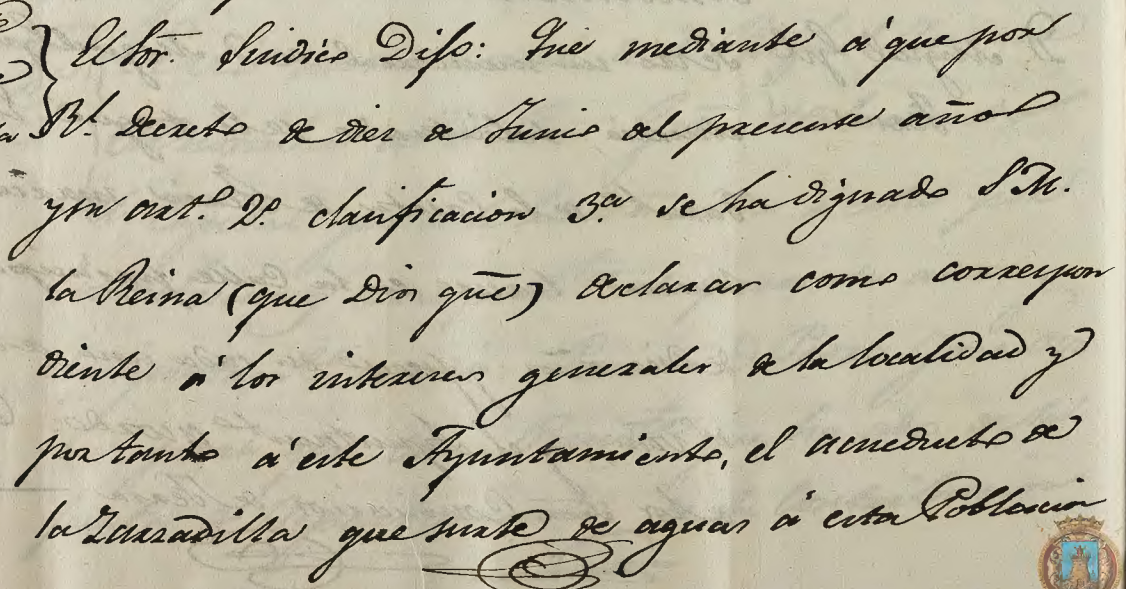 El Sor. Sindico Dijo: Que mediante á que por
Rl. Decreto de diez de Junio del presente año
y su art.º 2º clasificacion 3.ª se ha dignado S.M.
la Reina (que Dios gũe) declarar como correspon
diente á los intereses generales de la localidad y
por tanto á este Ayuntamiento, el acueducto de
la Zarzadilla que surte de aguas á esta Poblacion